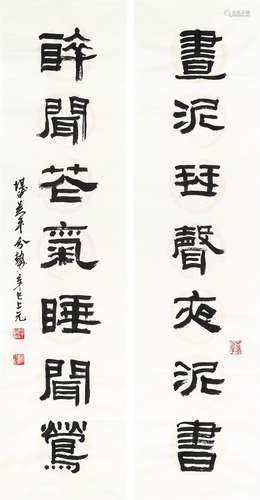 晝泥琴聲夜泥書
醉聞花氣睡聞鶯
辛巳上元